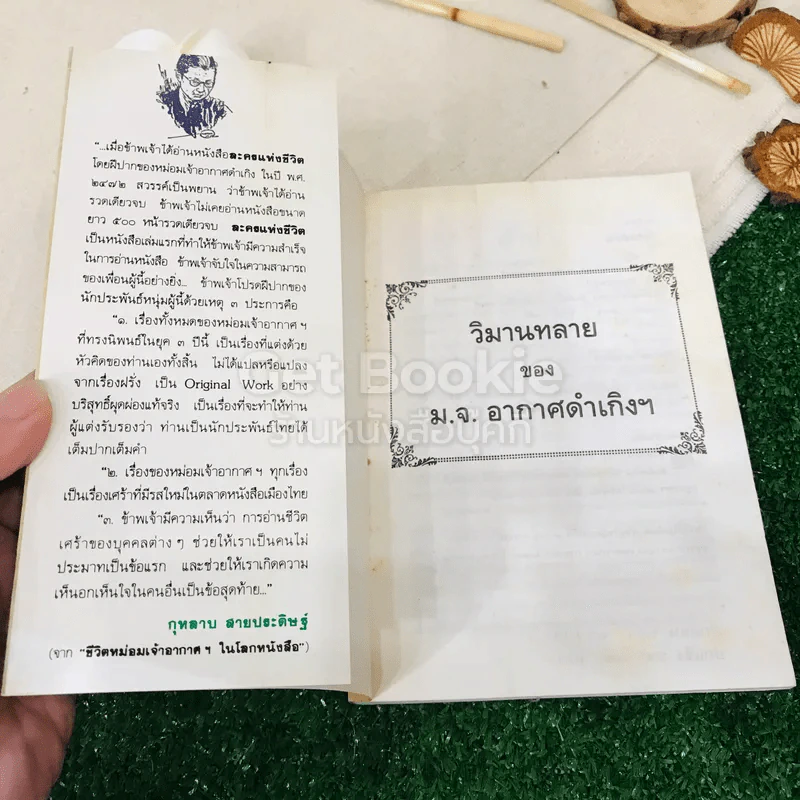 “...เมื่อข้าพเจ้าได้อ่านหนังสือละครแห่งชีวิต
โดยฝีปากของหม่อมเจ้าอากาศดำเกิง ในปี พ.ศ.
๒๔๗๒ สวรรค์เป็นพยาน ว่าข้าพเจ้าได้อ่าน
รวดเดียวจบ ข้าพเจ้าไม่เคยอ่านหนังสือขนาด
ยาว ๕๐๐ หน้ารวดเดียวจบ ละครแห่งชีวิต
เป็นหนังสือเล่มแรกที่ทำให้ข้าพเจ้ามีความสำเร็จ
ในการอ่านหนังสือ ข้าพเจ้าจับใจในความสามารถ
ของเพื่อนผู้นี้อย่างยิ่ง... ข้าพเจ้าโปรดฝีปากของ
นักประพันธ์หนุ่มผู้นี้ด้วยเหตุ ๓ ประการคือ
“๑. เรื่องทั้งหมดของหม่อมเจ้าอากาศฯ
ที่ทรงนิพนธ์ในยุค ๓ ปีนี้ เป็นเรื่องที่แต่งด้วย
หัวคิดของท่านเองทั้งสิ้น ไม่ได้แปลหรือแปลง
จากเรื่องฝรั่ง เป็น Original Work อย่าง
บริสุทธิ์ผุดผ่องแท้จริง เป็นเรื่องที่จะทำให้ท่าน
ผู้แต่งรับรองว่า ท่านเป็นนักประพันธ์ไทยได้
เต็มปากเต็มคำ
“๒. เรื่องของหม่อมเจ้าอากาศฯ ทุกเรื่อง
เป็นเรื่องเศร้าที่มีรสใหม่ในตลาดหนังสือเมืองไทย
“๓. ข้าพเจ้ามีความเห็นว่า การอ่านชีวิต
เศร้าของบุคคลต่างๆ ช่วยให้เราเป็นคนไม่
ประมาทเป็นข้อแรก และช่วยให้เราเกิดความ
เห็นอกเห็นใจในคนอื่นเป็นข้อสุดท้าย...”
กุหลาบ สายประดิษฐ์
(จาก “ชีวิตหม่อมเจ้าอากาศฯ ในโลกหนังสือ”)
วิมานทลาย
ของ
ม.จ. อากาศดำเกิงฯ
Get Bookie
ร้านหนังสือบุคกี้